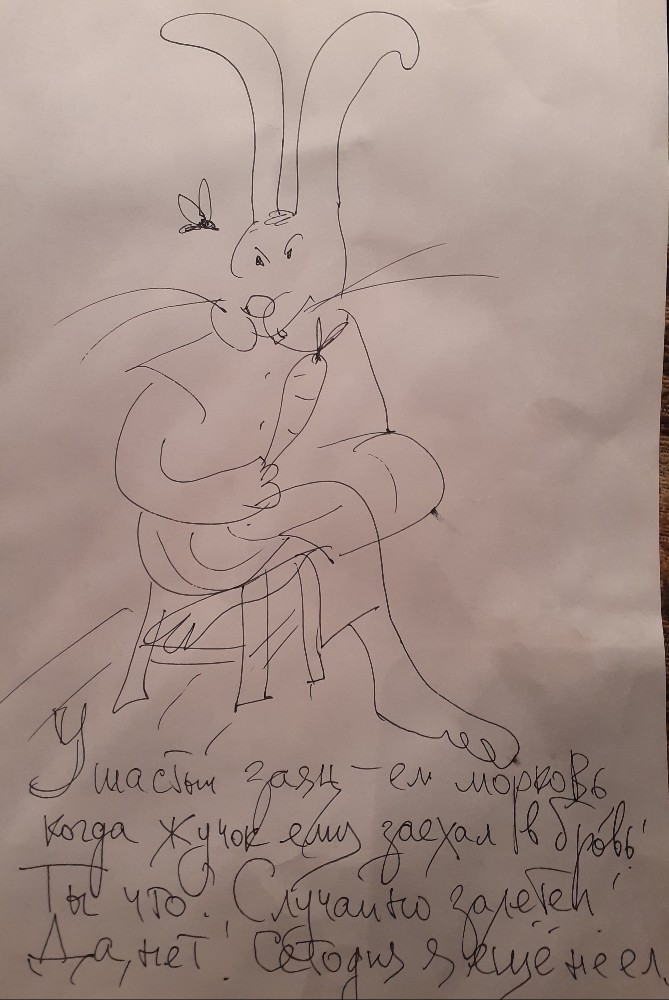 Ушастый заяц – ел морковь
когда жучок ему заехал в бровь!
Ты что! Случайно залетел!
Да, нет! Сегодня я ещё не ел.